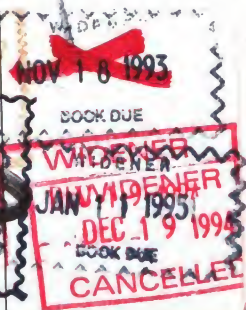 WIDENER
NOV 18 1993
BOOK DUE
WIDENER
WIDENER
WIDENER
JAN 1995
DEC 19 1994
BOOK DUE
CANCELLED